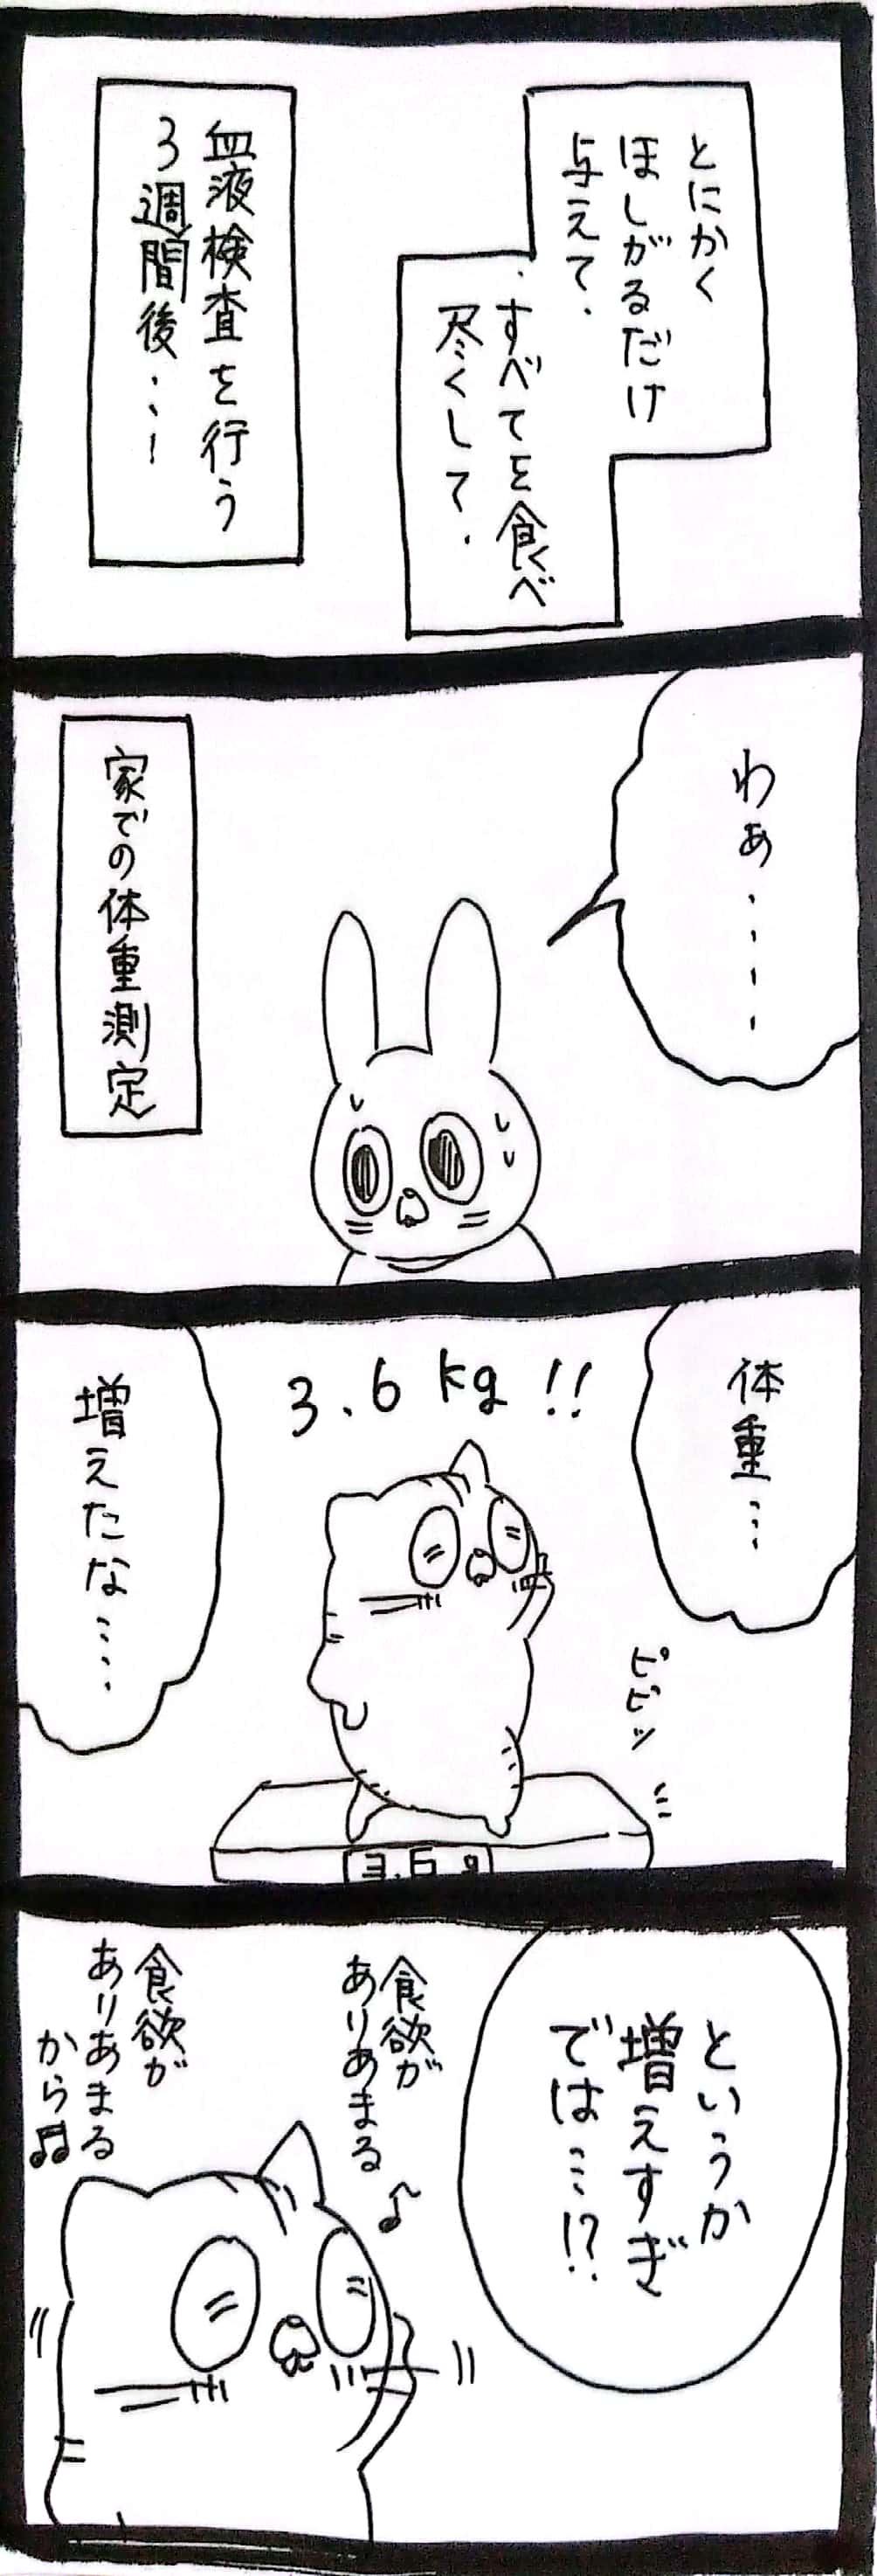 とにかく
ほしがるだけ
与えて.
すべてを食べ
尽くして.
血液検査を行う
3週間後…!
わぁ‥‥
家での体重測定
体重…
3.6kg!!
ピピッ
3.6g
増えたな‥‥
というか
増えすぎ
では…!?
食欲が
ありあまる♪
食欲が
ありあまる
から♫